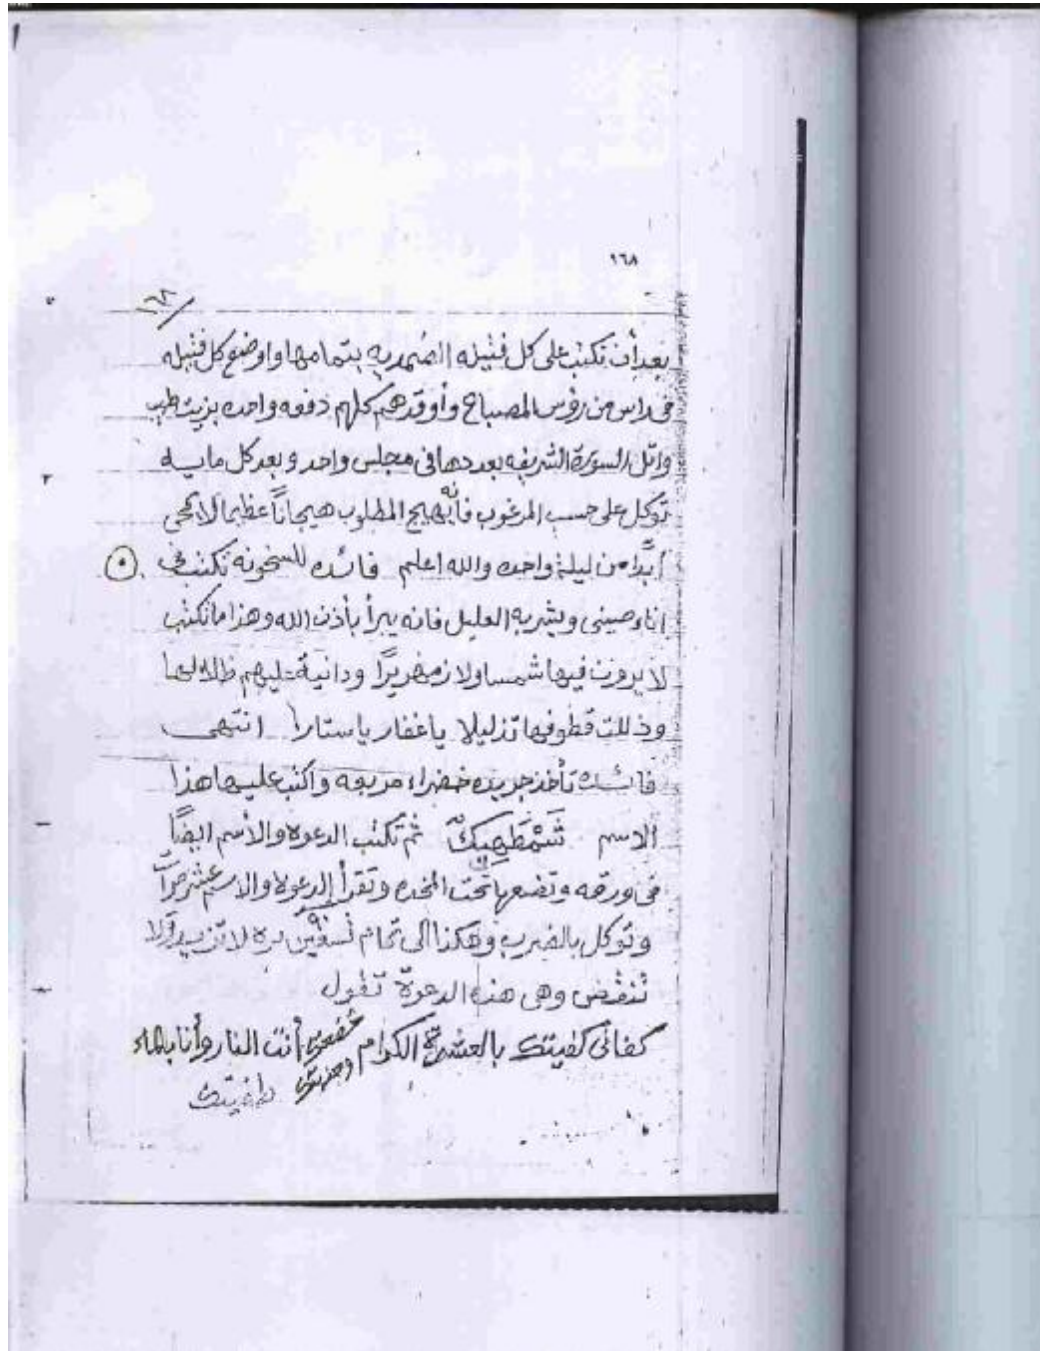 ١٦٨
١٦٨
بعد أن تكتب على كل فتيله الصمديه بتمامها واوضع كل فتيله
فى راس من رؤس المصباح وأوقدهم كلهم دفعه واحده بزيت طيب
واتل السورة الشريفه بعددها فى مجلس واحد وبعد كل مايه
توكل على حسب المرغوب فأنه يهيج المطلوب هيجاناً عظيما لا
أبداً من ليلة واحده والله اعلم فائده للسخونه تكتب فى
اناء صينى ويشربه العليل فانه يبرأ بأذن الله وهذا ما تكتب
لا يرون فيها شمسا ولا زمهريرًا ودانية عليهم ظلالها
وذللت قطوفها تذليلا يا غفار يا ستار انتهى
فائدة تأخذ جريده خضراء مربعه واكتب عليها هذا
الاسم ثم تكتب الدعوة والأسم ايضاً
فى ورقه وتضعها تحت المخده وتقرأ الدعوة والاسم عشر مرات
وتوكل بالضرب وهكذا الى تمام تسعين مره لا تزيد ولا
تنقص وهى هذه الدعوة تقول
كفانى كفيتك بالعشرة الكرام أنت النار وأنا بالماء
طفيتك